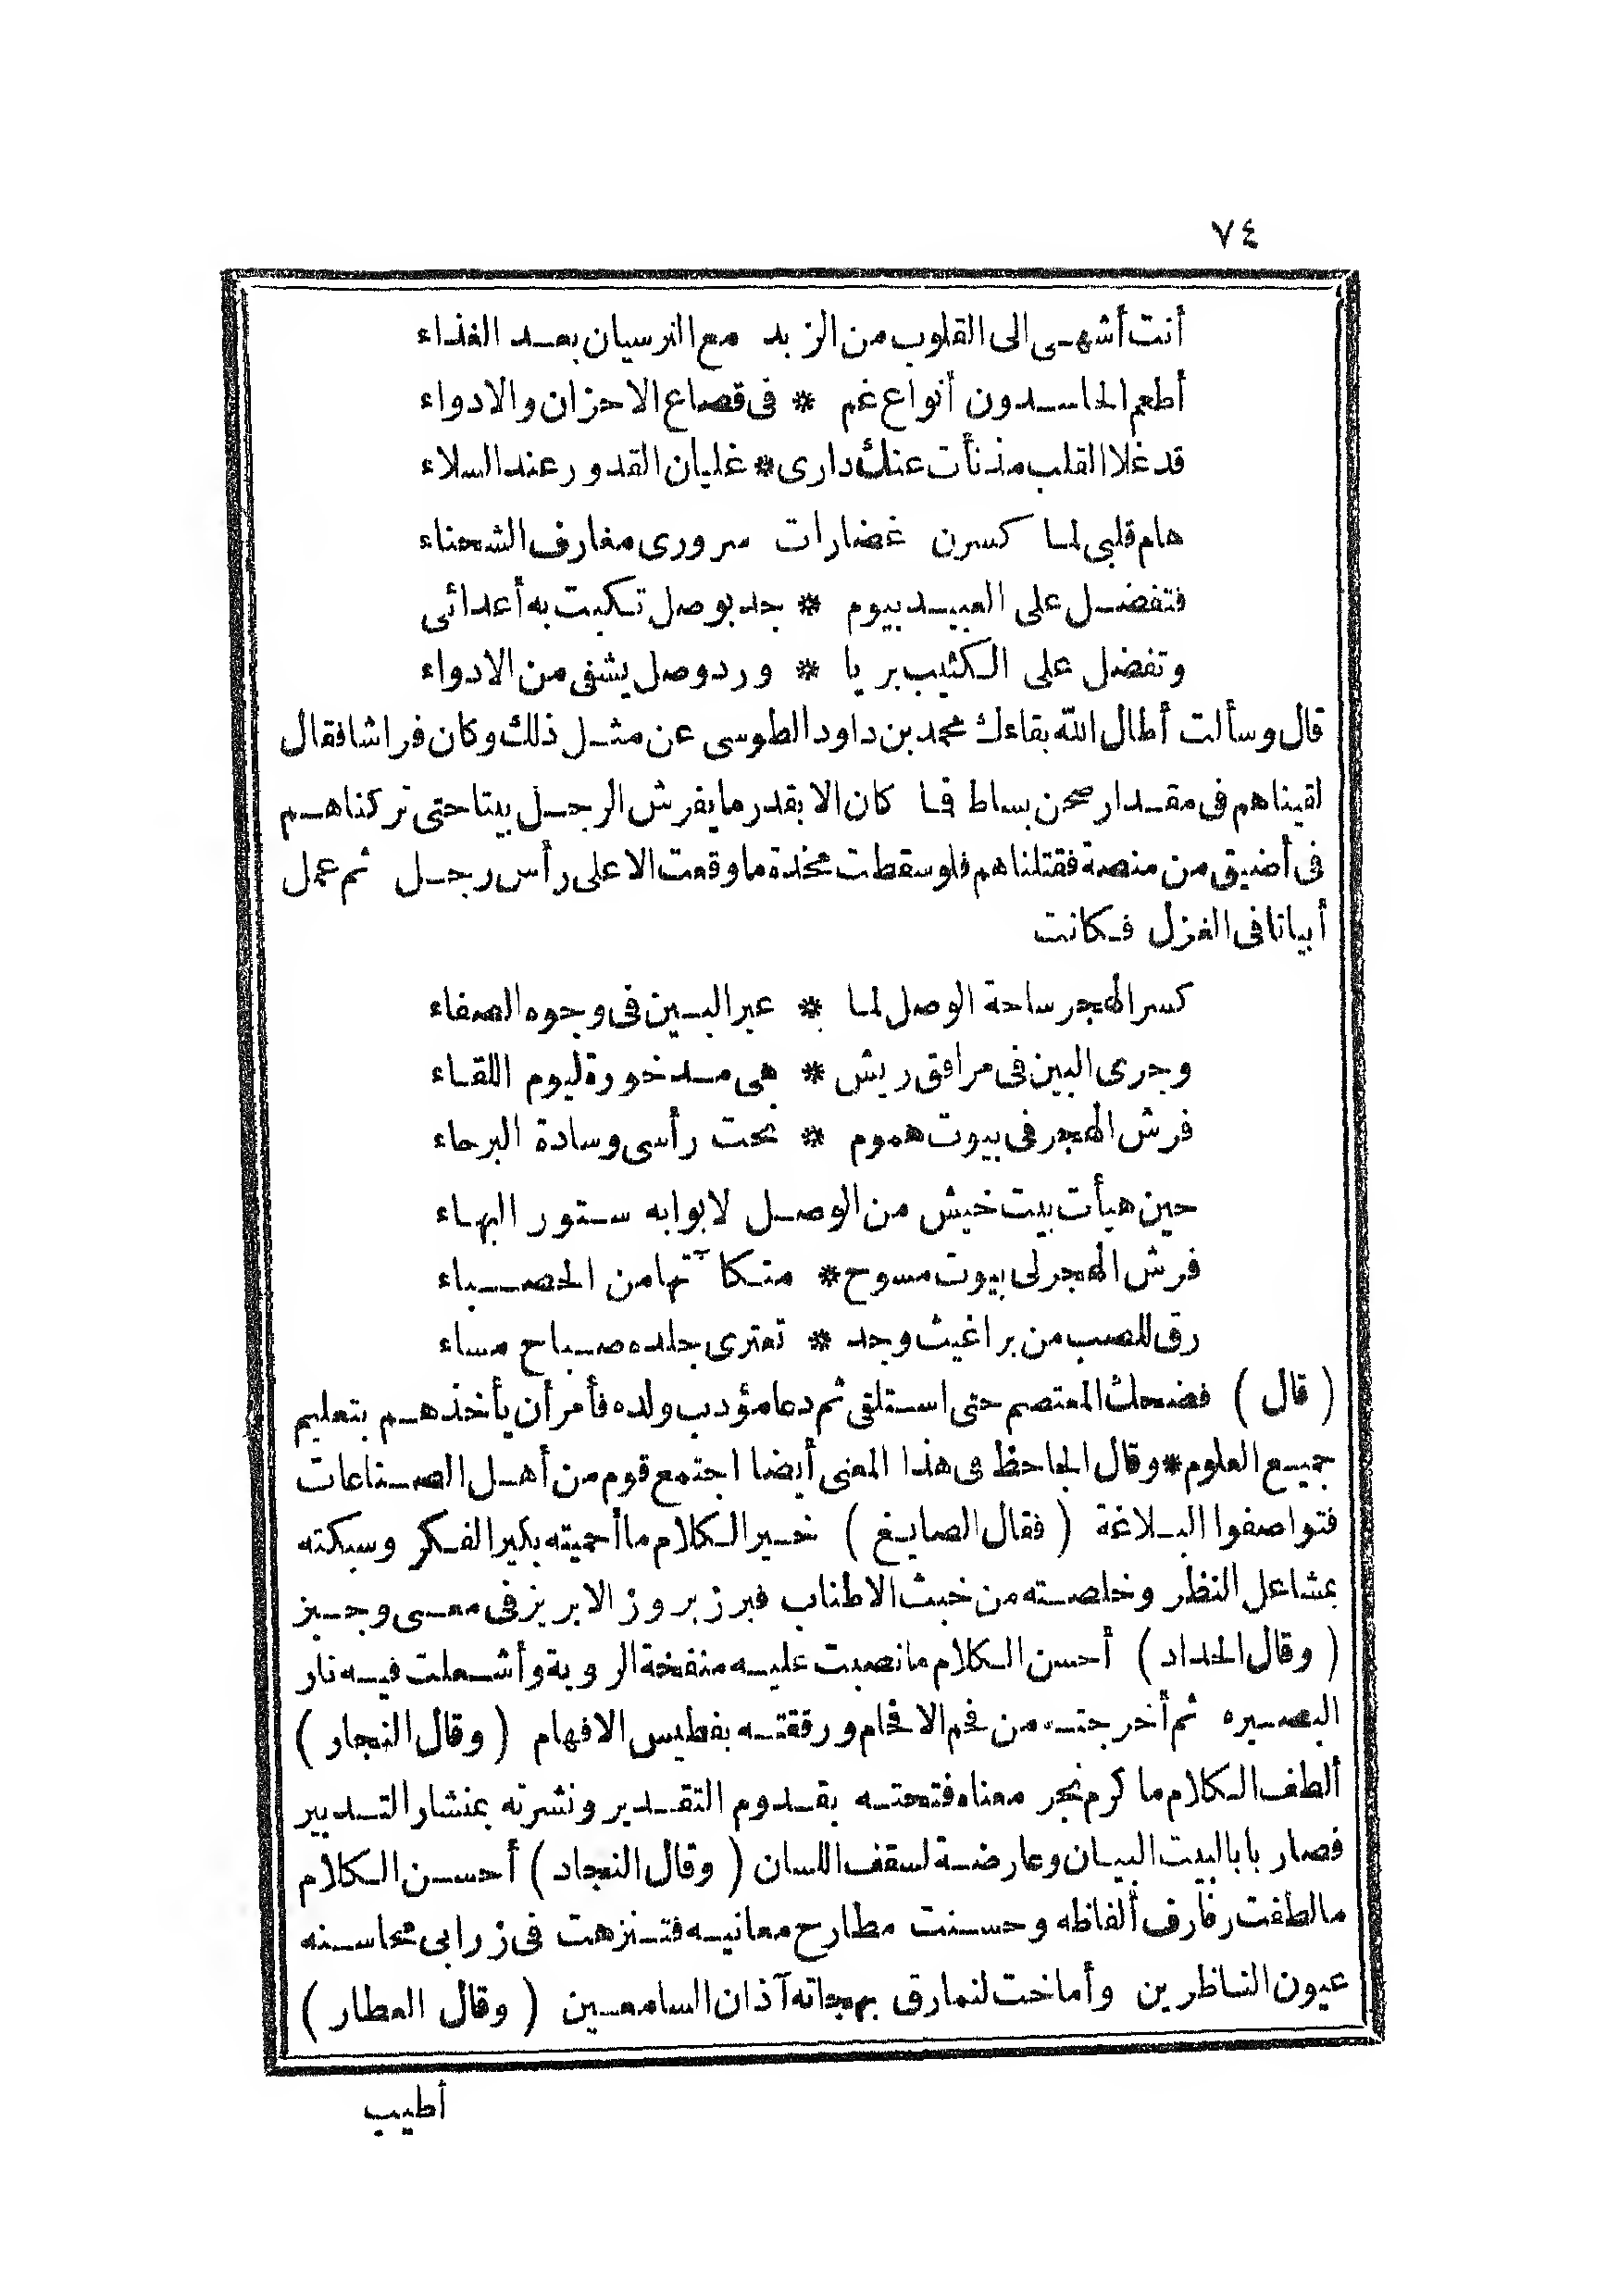 ٧٤
أنت أشهى الى القلوب من الزبد مع النرسيان بعد الغذاء
أطعم الحاسدون أنواع غم * فى قصاع الاحزان والادواء
قد غلا القلب مذ نأت عنك دارى * غليان القدور عند السلاء
هام قلبى لما كسرن غضارات سرورى مغارف الشحناء
فتفضل على العبيد بيوم * جد بوصل تكبت به أعدائى
وتفضل على الكئيب بريا * ورد وصل يشفى من الادواء
قال وسألت أطال الله بقاءك محمد بن داود الطوسى عن مثل ذلك وكان فراشا فقال
لقيناهم فى مقدار صحن بساط فما كان الا بقدر ما يفرش الرجل بيتا حتى تركناهم
فى أضيق من منصة فقتلناهم فلو سقطت مخدة ما وقعت الا على رأس رجل ثم عمل
أبياتا فى الغزل فكانت
كسر الهجر ساحة الوصل لما * عبر البين فى وجوه الصفاء
وجرى البين فى مرافق ريش * هى مدخورة ليوم اللقاء
فرش الهجر فى بيوت هموم * تحت رأسى وسادة البرحاء
حين هيأت بيت خيش من الوصل لابوابه ستور البهاء
فرش الهجر لى بيوت مسوح * متكآتها من الحصباء
رق للصب من براغيث وجد * تعترى جلده صباح مساء
( قال ) فضحك المعتصم حتى استلقى ثم دعا مؤدب ولده فأمر أن يأخذهم بتعليم
جميع العلوم * وقال الجاحظ فى هذا المعنى أيضا اجتمع قوم من أهل الصناعات
فتواصفوا البلاغة ( فقال الصايغ ) خير الكلام ما أحميته بكير الفكر وسبكته
بمشاعل النظر وخلصته من خبث الاطناب فبرز بروز الابريز فى معنى وجيز
( وقال الحداد ) أحسن الكلام ما نصبت عليه منفخة الروية وأشعلت فيه نار
البصيره ثم أخرجته من فحم الافحام ورققته بفطيس الافهام ( وقال النجار )
ألطف الكلام ما كرم نجر معناه فتحته بقدوم التقدير ونشرته بمنشار التدبير
فصار بابا لبيت البيان وعارضة لسقف اللسان ( وقال النجاد ) أحسن الكلام
ما لطفت رفارف ألفاظه وحسنت مطارح معانيه فتنزهت فى زرابى محاسنه
عيون الناظرين وأصاخت لنمارق بهجاته آذان السامعين ( وقال العطار )
أطيب